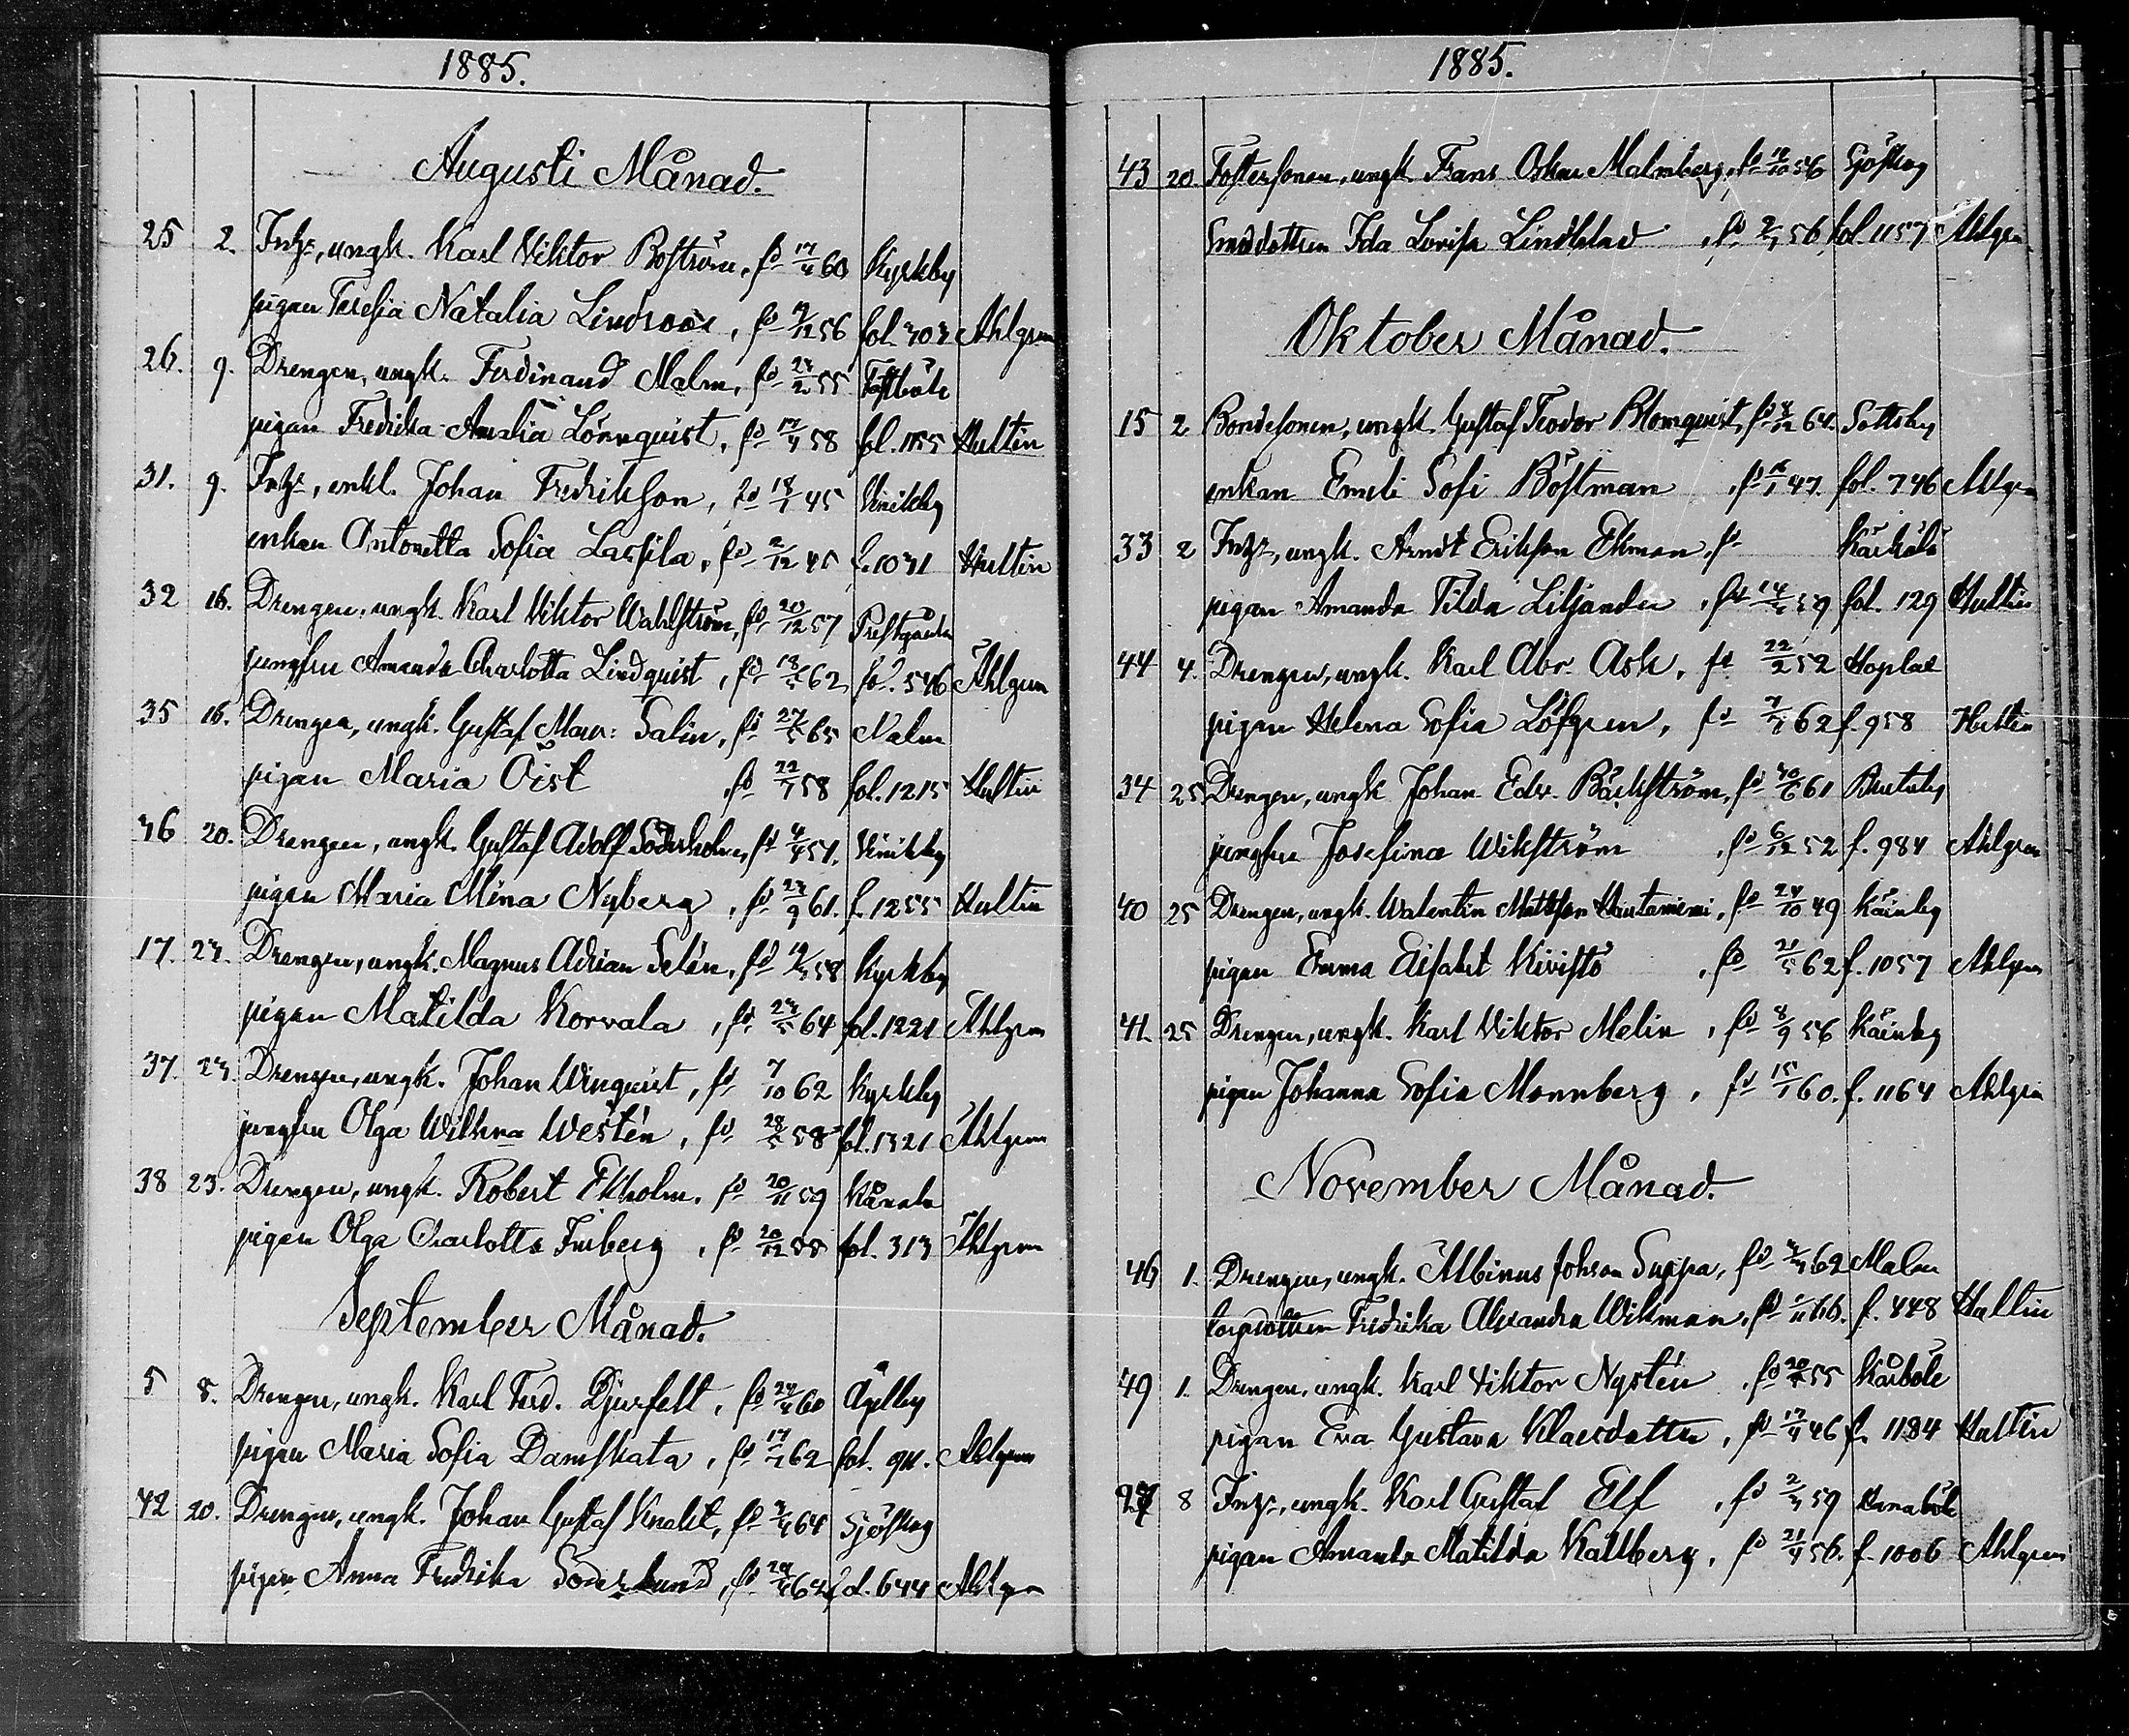 1885.
Augusti Månad.
25 2. Inhs, ungk. Karl Viktor Boström, fd 17/4 60 Kyrkby
pigan Teresia Natalia Lindroos, fd 9/12 56 fol. 303 Ahlgren
26. 9. Drengen, ungk. Ferdinand Malm, fd 23/2 55
pigan Fredrika Amalia Lönnquist, fd 17/4 58 fol. 1155 Hultin
31. 9. Inhs, enkl. Johan Fredrikson, fd 18/1 45
enkan Antonetta Sofia Lassila, fd 2/12 45 f. 1031 Hultin
32 16. Drengen, ungk. Karl Viktor Wahlström, fd 20/12 57
jungfru Amanda Charlotta Lindquist, fd 18/5 62 fol. 546 Ahlgren
35 16. Drengen, ungk. Gustaf Salin, fd 27/5 65 Malm
pigan Maria Öist fd 22/7 58 fol. 1215 Hultin
36 20. Drengen, ungk. Gustaf Adolf Söderholm, fd
pigan Maria Mina Nyberg, fd 23/9 61. f. 1255 Hultin
17. 23. Drengen, ungk. Magnus Adrian Selén, fd 58 Kyrkby
pigan Matilda Korvala, fd 23/5 64 fol. 1221 Ahlgren
37. 23. Drengen, ungk. Johan Winquist, fd 7/10 62 Kyrkby
jungfru Olga Wilhna Westén, fd 28/5 58 fol. 1321 Ahlgren
38 23. Drengen, ungk. Robert Ekholm, fd 20/11 59
pigan Olga Charlotta Friberg, fd 20/12 55 fol. 313 Ahlgren
September Månad.
5 8. Drengen, ungk. Karl Ferd. Djurfelt, fd 24/4 60
pigan Maria Sofia Damskata, fd 17/7 62 fol. 911. Ahlgren
42 20. Drengen, ungk. Johan Gustaf Knekt, fd 64 Sjöskog
pigan Anna Fredrika Söderlund, fd fol. 644 Ahlgren
1885.
43 20. Fostersonen, ungk. Frans Oskar Malmberg, fd 18/10 56 Sjöskog
Ida Lovisa Lindblad, fd 56, fol. 1157 Ahlgren
Oktober Månad.
15 2 Bondesonen, ungk. Gustaf Teodor Blomquist, fd 8/12 64.
enkan Emeli Sofi Böstman, fd 47. fol. 746 Ahlgren
33 2 Inhs, ungk. Arndt Erikson Ekman, fd
pigan Amanda Tilda Liljander, fd 59 fol. 129 Hultin
44 4. Drengen, ungk. Karl Abr. Ask, fd 22/2 52
pigan Helena Sofia Löfgren, fd 7/7 62 f. 958 Hultin
34 25 Drengen, ungk. Johan Edv. Bäckström, fd 30/6 61
jungfru Josefina Wikström, fd 6/12 52 f. 984 Ahlgren
40 25 Drengen, ungk. Walentin Mattsson, fd 24/10 49
pigan Emma Elisabet Kivistö, fd 21/5 62 f. 1057 Ahlgren
41. 25 Drengen, ungk. Karl Viktor Melin, fd 8/9 56
pigan Johanna Sofia Monnberg, fd 15/1 60. f. 1164 Ahlgren
November Månad.
46 1. Drengen, ungk. Albinus Johson Suppa, fd 62 Malm
Fredrika Alexandra Wikman, fd 66. f. 448 Hultin
49 1. Drengen, ungk. Karl Viktor Nystén, fd 55 Kårböle
pigan Eva Gustava Klaesdotter, fd 17/4 46 f. 1184 Hultin
8 Inhs, ungk. Karl Gustaf Elf, fd 2/3 59
pigan Amanda Matilda Kallberg, fd 21/4 56. f. 1006 Ahlgren